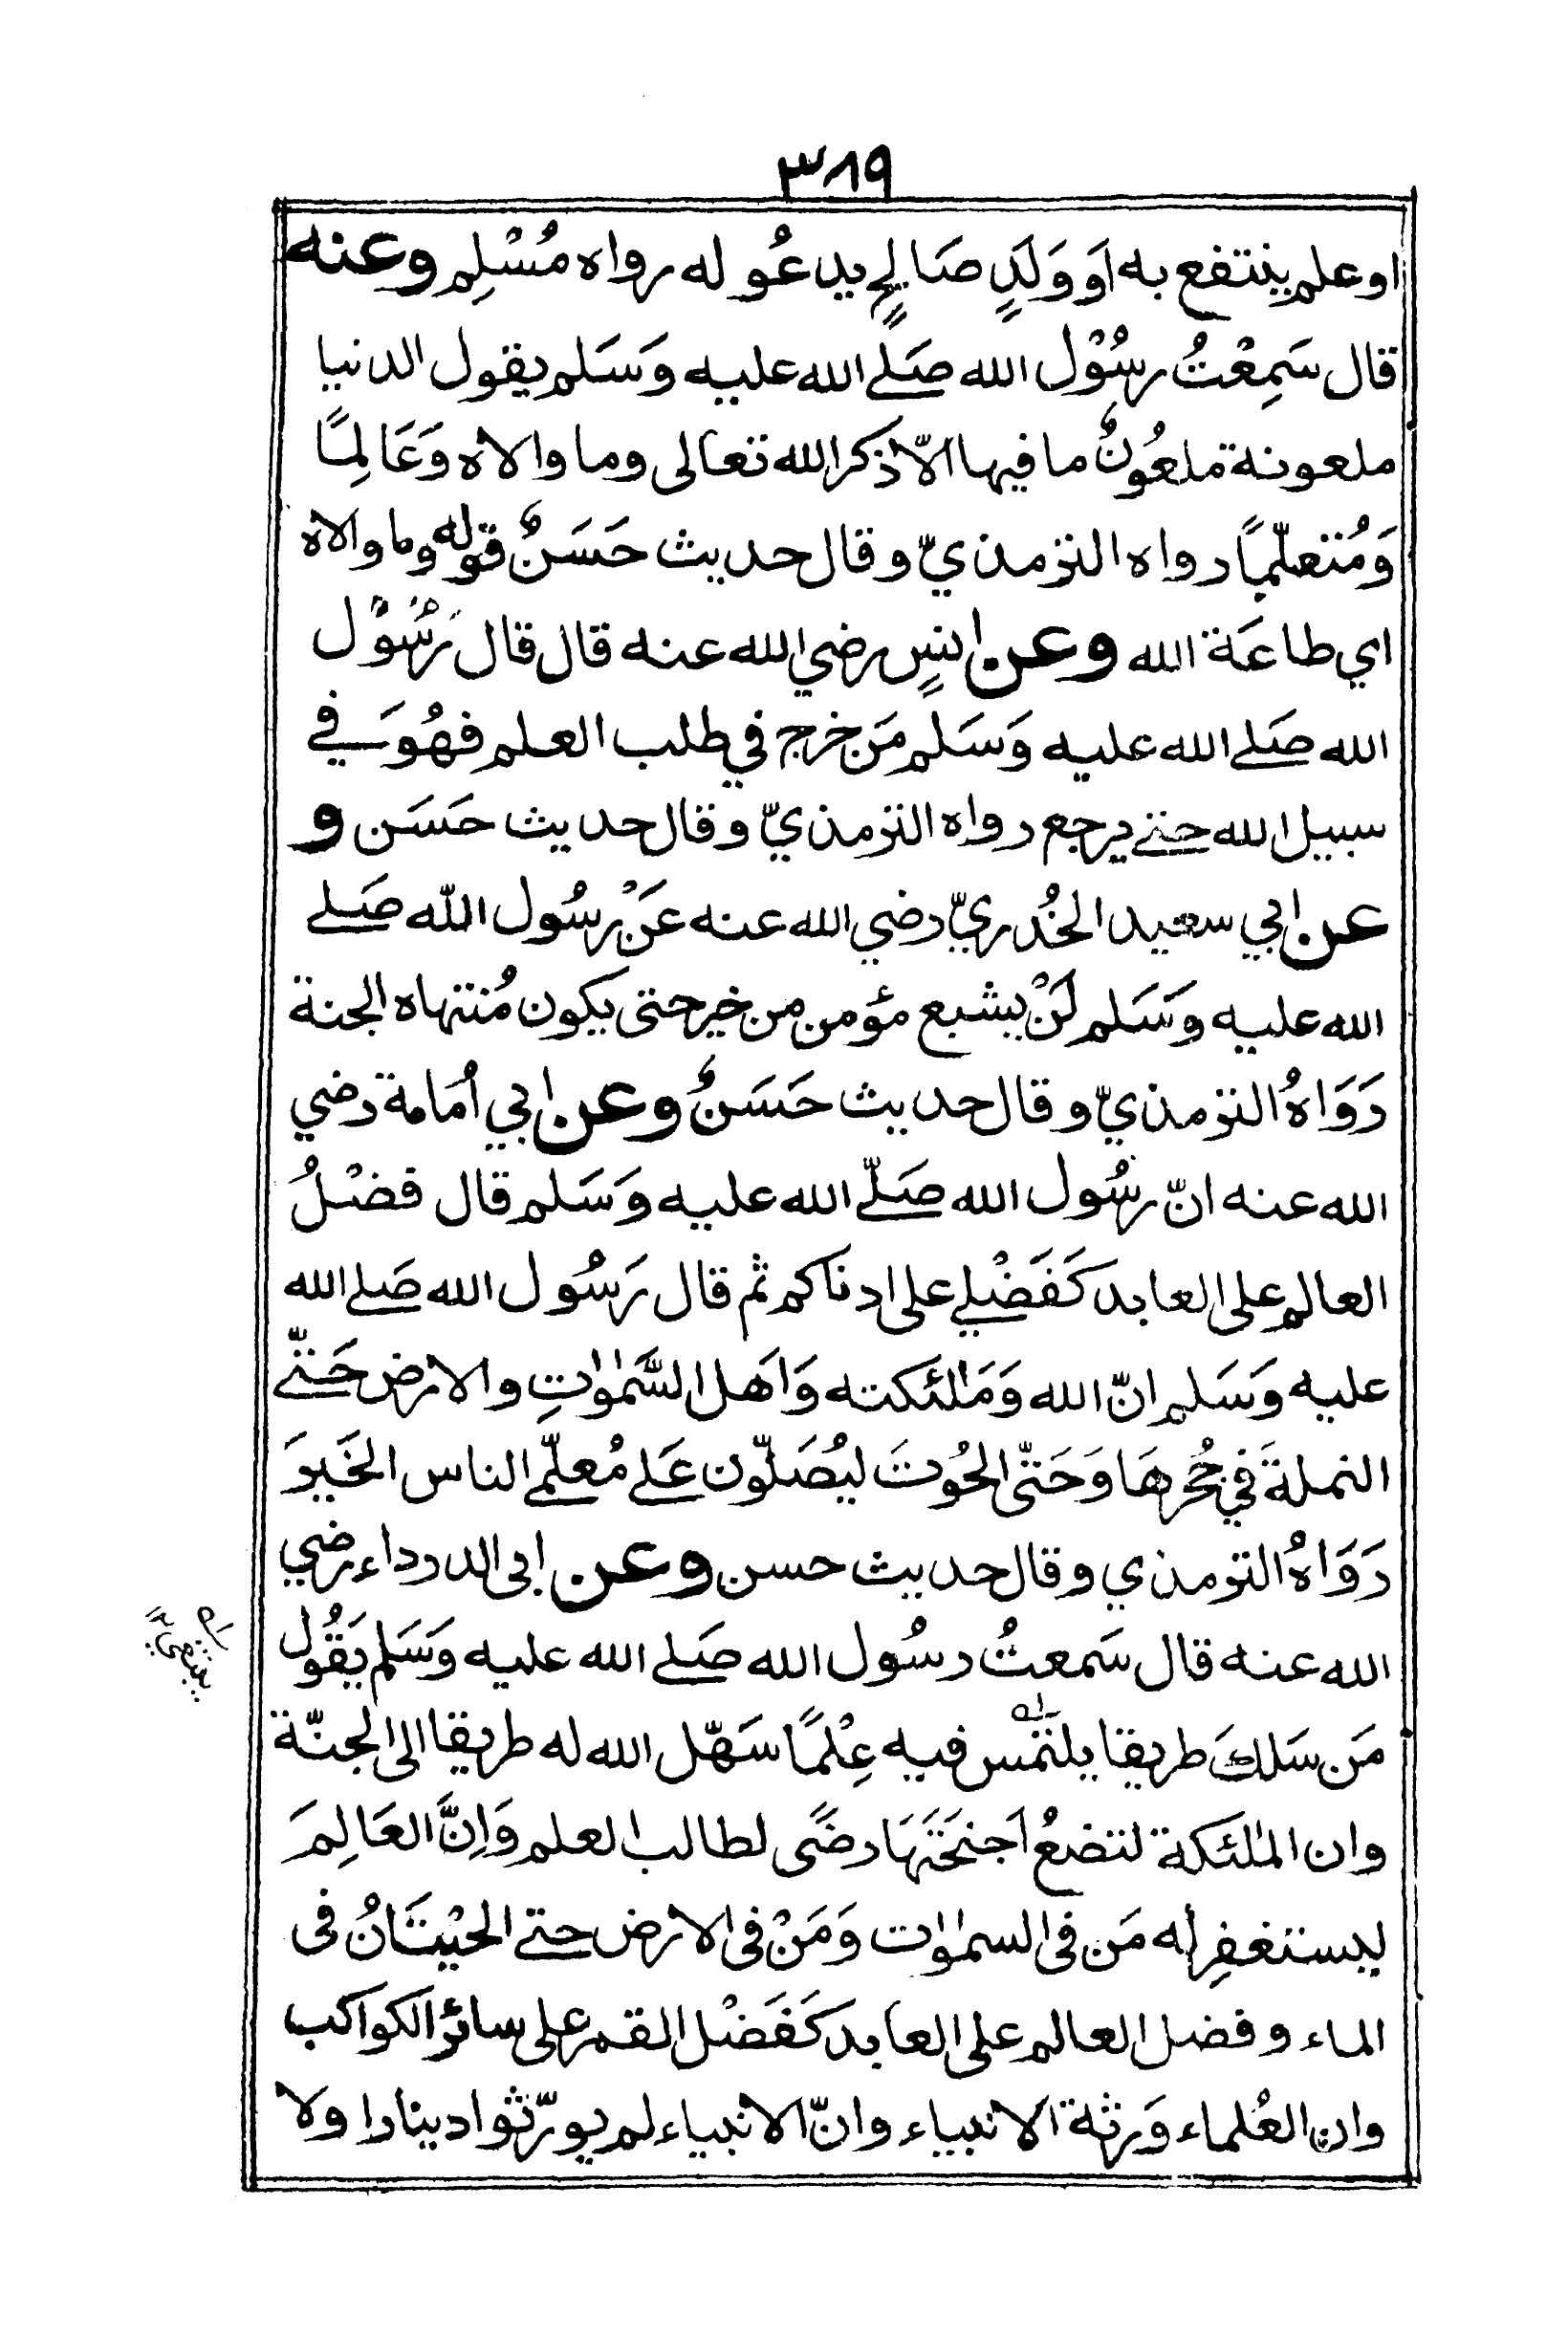 ٣٨٩
او علم ينتفع به اَو وَلَدٍ صَالِحٍ يدعُو له رواه مُسْلِم وعنه
قال سَمِعْتُ رسُوْل الله صَلے الله عليه وَسَلم يقول الدنيا
ملعونة ملعُونٌ ما فيها الاّ ذكر الله تعالى وما والاه وَعَالِمًا
وَمُتعلّمًا رواه الترمذيّ وقال حديث حَسَنٌ قوله وما والاه
اي طاعَة الله وعن انسٍ رضي الله عنه قال قال رَسُوْل
الله صَلے الله عليه وَسَلم مَن خرج في طلب العلم فهُوَ في
سبيل الله حتے يرجع رواه الترمذيّ وقال حديث حَسَن و
عن ابي سعيد الخُدريّ رضي الله عنه عَنْ رسُول الله صَلے
الله عليه وَسَلم لَنْ يشبع مؤمن من خير حتى يكون مُنتهاه الجنة
رَوَاهُ الترمذيّ وقال حديث حَسَنٌ وعن ابي اُمَامة رضي
الله عنه انّ رسُول الله صَلّے الله عليه وَسَلم قال فضْلُ
العالم على العابد كَفَضْلي على ادناكم ثم قال رَسُول الله صَلے الله
عليه وَسَلم انّ الله وَمَلٰئكته وَاَهل السَّمٰوٰتِ والارض حَتّے
النملةَ في جُحْرهَا وَحَتّى الحُوتَ ليُصَلّون عَلے مُعلّمي الناس الخَيرَ
رَوَاهُ الترمذي وقال حديث حسن وعن ابى الدرداء رضي
الله عنه قال سَمعتُ رسُول الله صَلے الله عليه وَسَلم يَقُول
مَن سَلكَ طريقا يلتمس فيه عِلْمًا سَهّل الله له طريقا الى الجنّة
وان الملٰئكة لتضعُ اَجنحَتَهَا رضًى لطالب العلم وَاِنَّ العَالِمَ
ليستغفِر له مَن فى السمٰوٰت وَمَنْ فى الارض حتے الحْيتَانُ فى
الماء وفضل العالم على العابد كَفَضْل القمر على سائر الكواكب
وان العُلماء وَرثة الانبياء وانّ الانبياء لم يورّثوا دينارا ولا